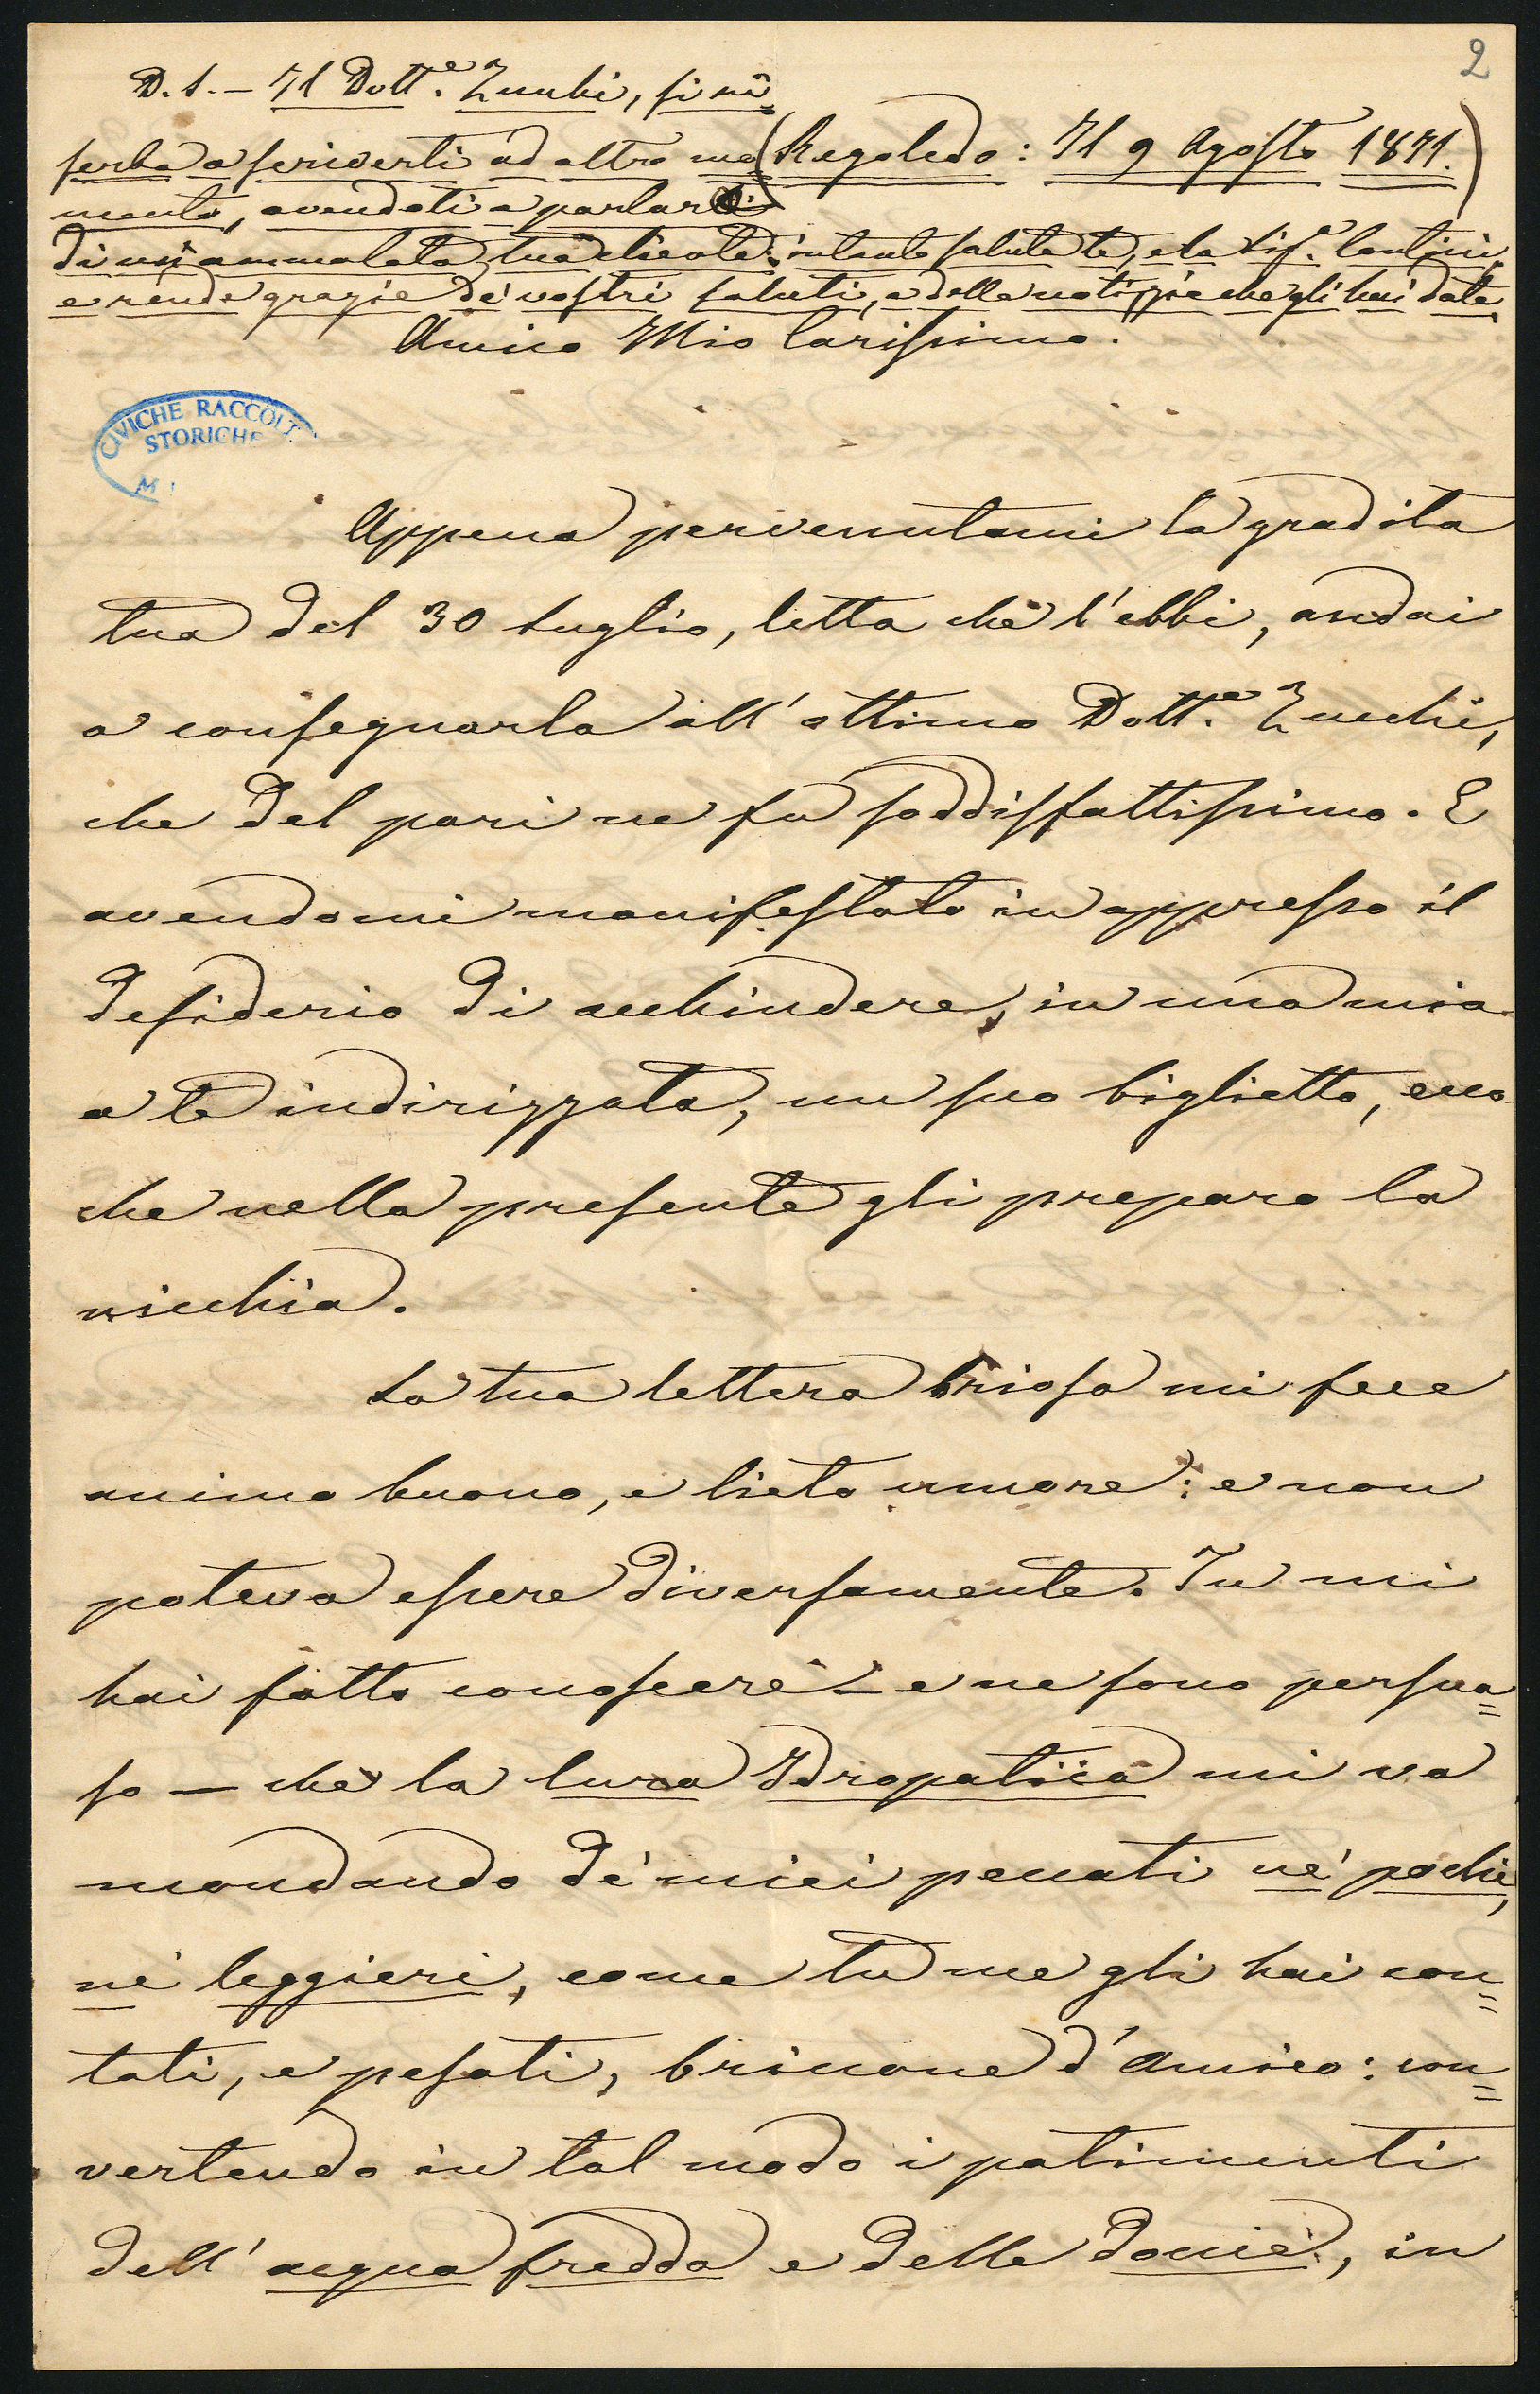 2
P.S. — Il Dott.e Zucchi, si ri=
serba a scriverti ad altro mo
(Regoledo: Il 9 Agosto 1871.)
mento, avendoti a parlare
di un'ammalata tua cliente: intanto saluta te, e la Sig.a Cantini,
e rende grazie de' vostri saluti, e delle notizie che gli hai date.
Amico Mio Carissimo.
CIVICHE RACCOLT.
STORICHE
M
Appena pervenutami la gradita
tua del 30 Luglio, letta che l'ebbi, andai
a consegnarla all'ottimo Dott.e Zucchi,
che del pari ne fu soddisfattissimo. E
avendomi manifestato in appresso il
desiderio di acchiudere, in una mia
a te indirizzata, un suo biglietto, ecco
che nella presente gli preparo la
nicchia.
La tua lettera briosa mi fece
animo buono, e lieto umore: e non
poteva essere diversamente. Tu mi
hai fatto conoscere — e ne sono persua=
so — che la Cura Idropatica mi va
mondando de' miei peccati nè pochi,
nè leggieri, come tu me gli hai con=
tati, e pesati, briccone d'Amico: con=
vertendo in tal modo i patimenti
dell'acqua fredda e delle docciè, in